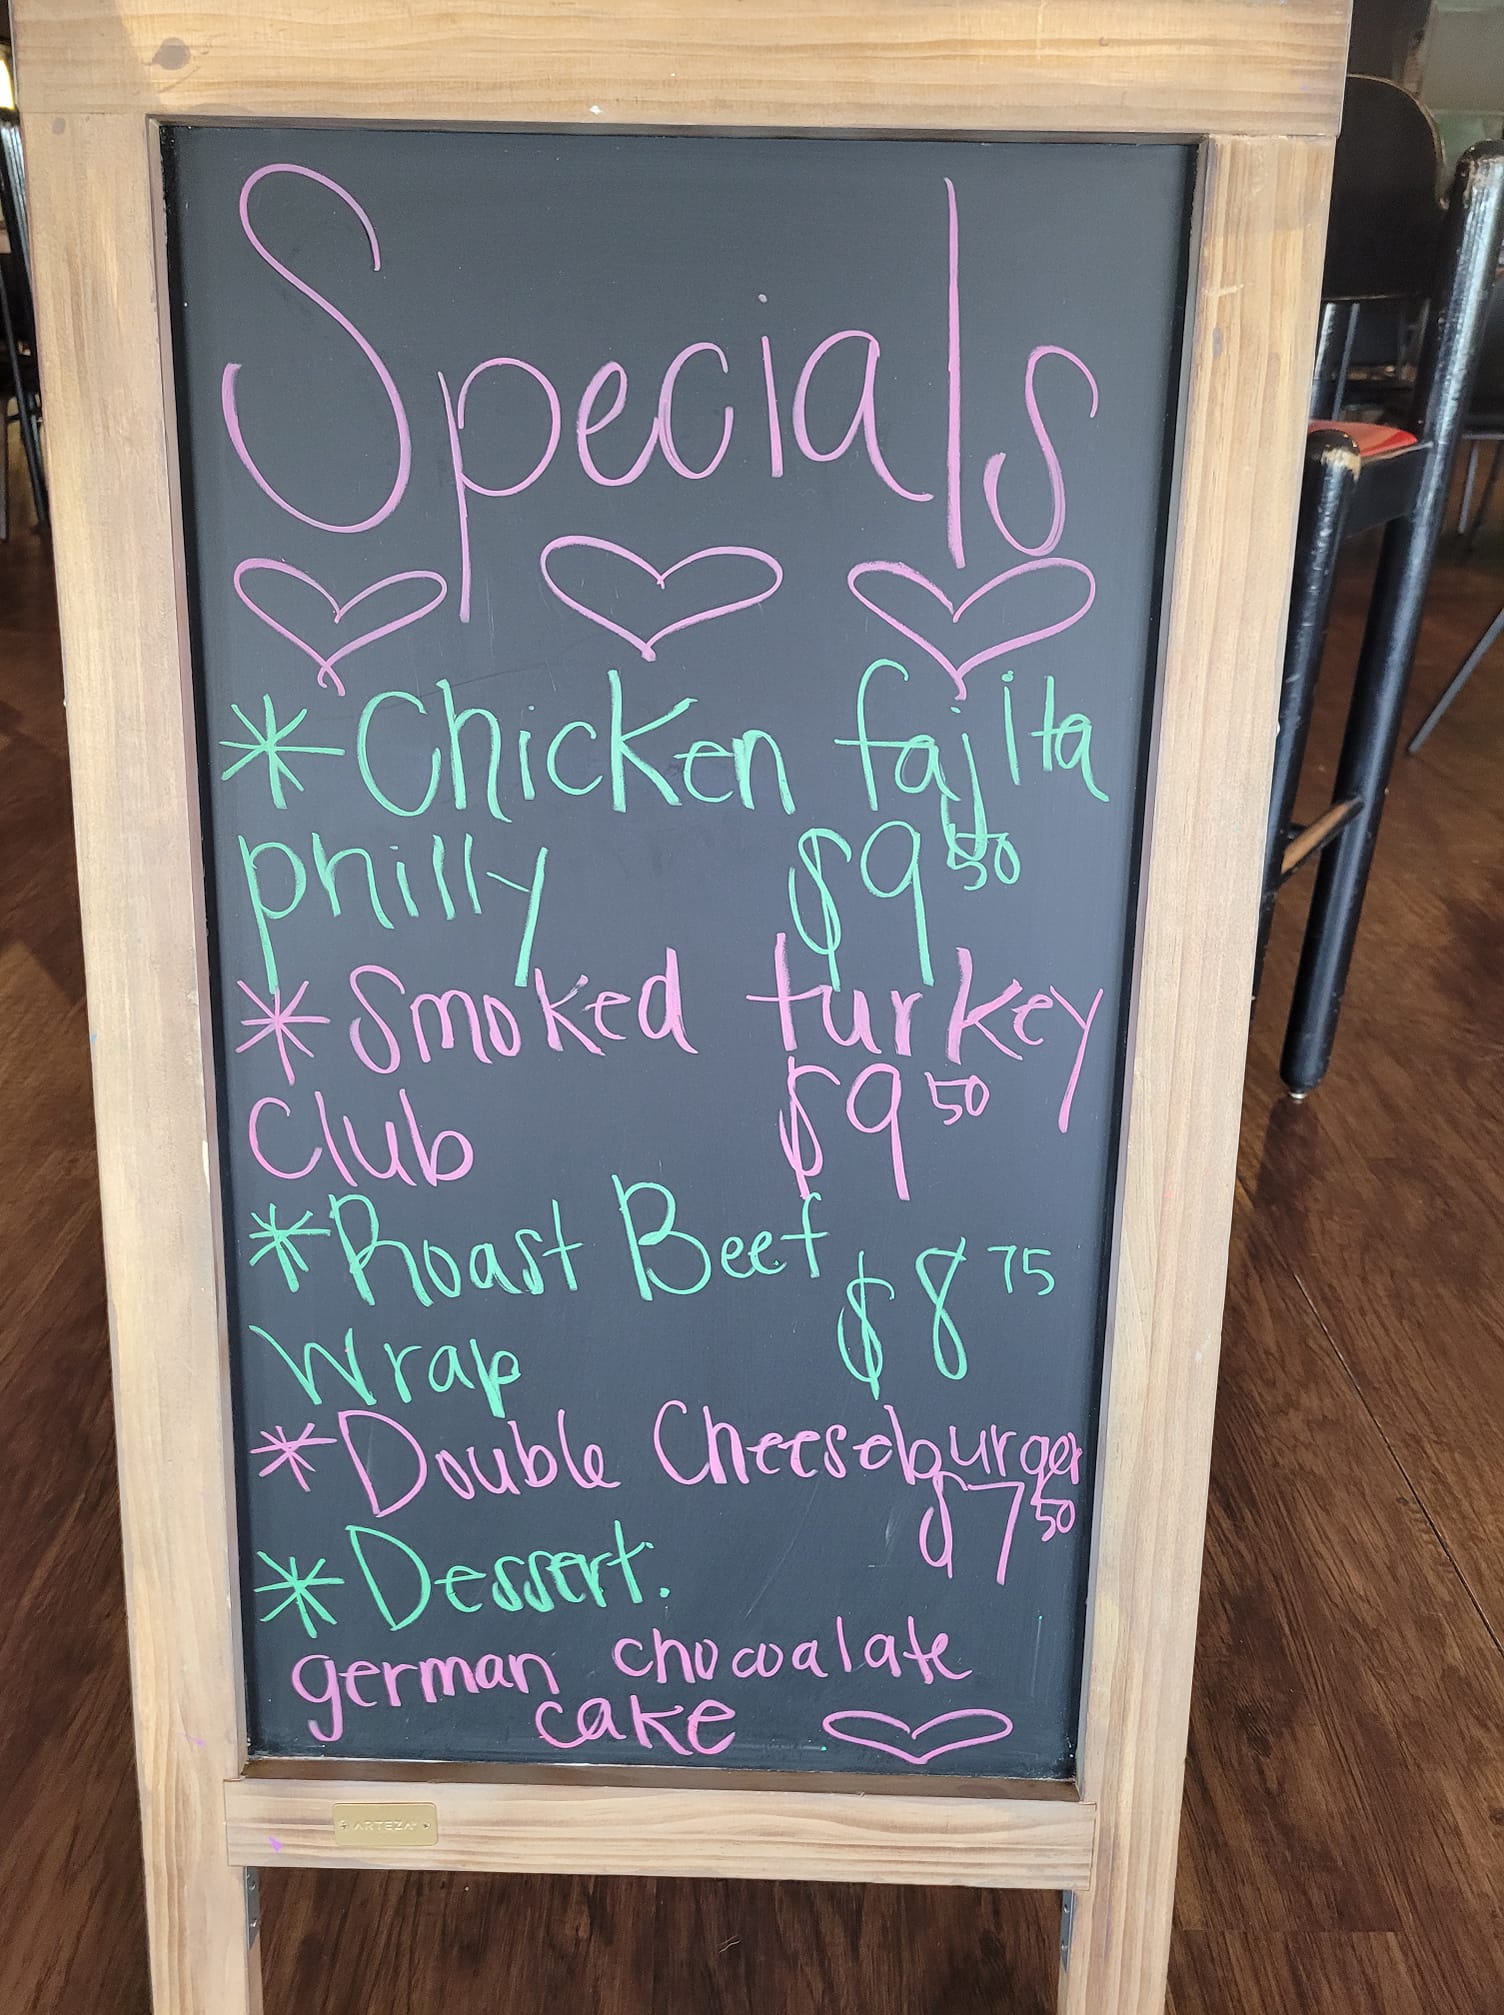 Specials
*Chicken fajita
philly $9.50
*Smoked turkey
Club $9.50
*Roast Beef
Wrap $8.75
*Double Cheeseburger
$7.50
*Dessert:
german chocoalate
cake
ARTEZA